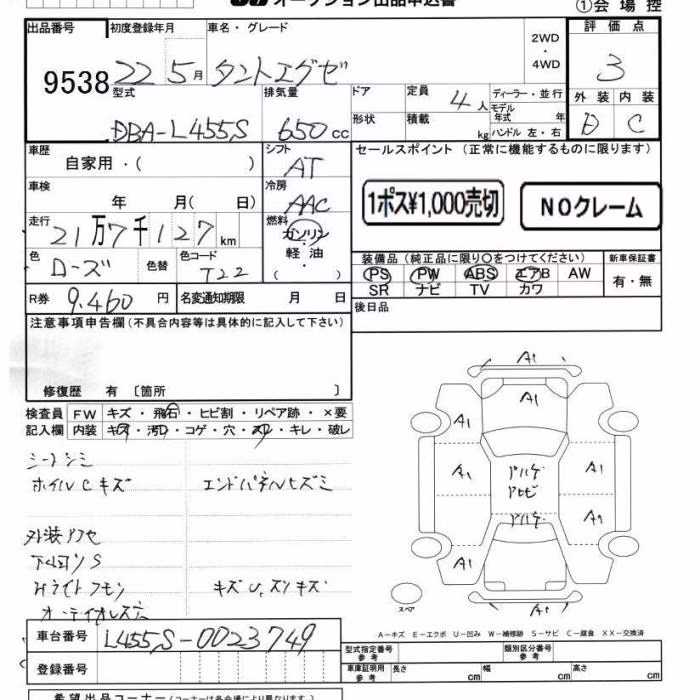 オークション出品申込書
①会場控
出品番号
9538
初度登録年月
22 5月
車名・グレード
タントエグゼ
2WD
・
4WD
評価点
3
外装 内装
D C
型式
DBA-L455S
排気量
650cc
ドア
形状
定員
4人
積載
kg
ディーラー・並行
モデル
年式 年
ハンドル 左・右
車歴
自家用・( )
シフト
AT
車検
年 月( 日)
冷房
AAC
走行
21万7千127km
燃料
ガソリン
軽油
( )
色
ローズ
色替
色コード
T22
R券 9.460円
名変通知期限 月 日
セールスポイント (正常に機能するものに限ります)
1ポス¥1,000売切
NOクレーム
装備品 (純正品に限り○をつけてください)
PS PW ABS エアB AW
SR ナビ TV カワ
新車保証書
有・無
後日品
注意事項申告欄 (不具合内容等は具体的に記入して下さい)
修復歴 有 〔箇所 〕
検査員 FW キズ・飛石・ヒビ割・リペア跡・×要
記入欄 内装 キズ・汚れ・コゲ・穴・スレ・キレ・破レ
シートシミ
ホイルCキズ エンドパネルヒズミ
外装
キズU,スリキズ
A1
A1
A1
A1
A1
A1
A1
A1
A1
スペア
A-キズ E-エクボ U-凹み W-補修跡 S-サビ C-腐食 XX-交換済
車台番号 L455S-0023749
登録番号
型式指定番号
参考
類別区分番号
参考
車庫証明用
参考
長さ cm 幅 cm 高さ cm
希望出品コーナー (コーナーは各会場により異なります。)